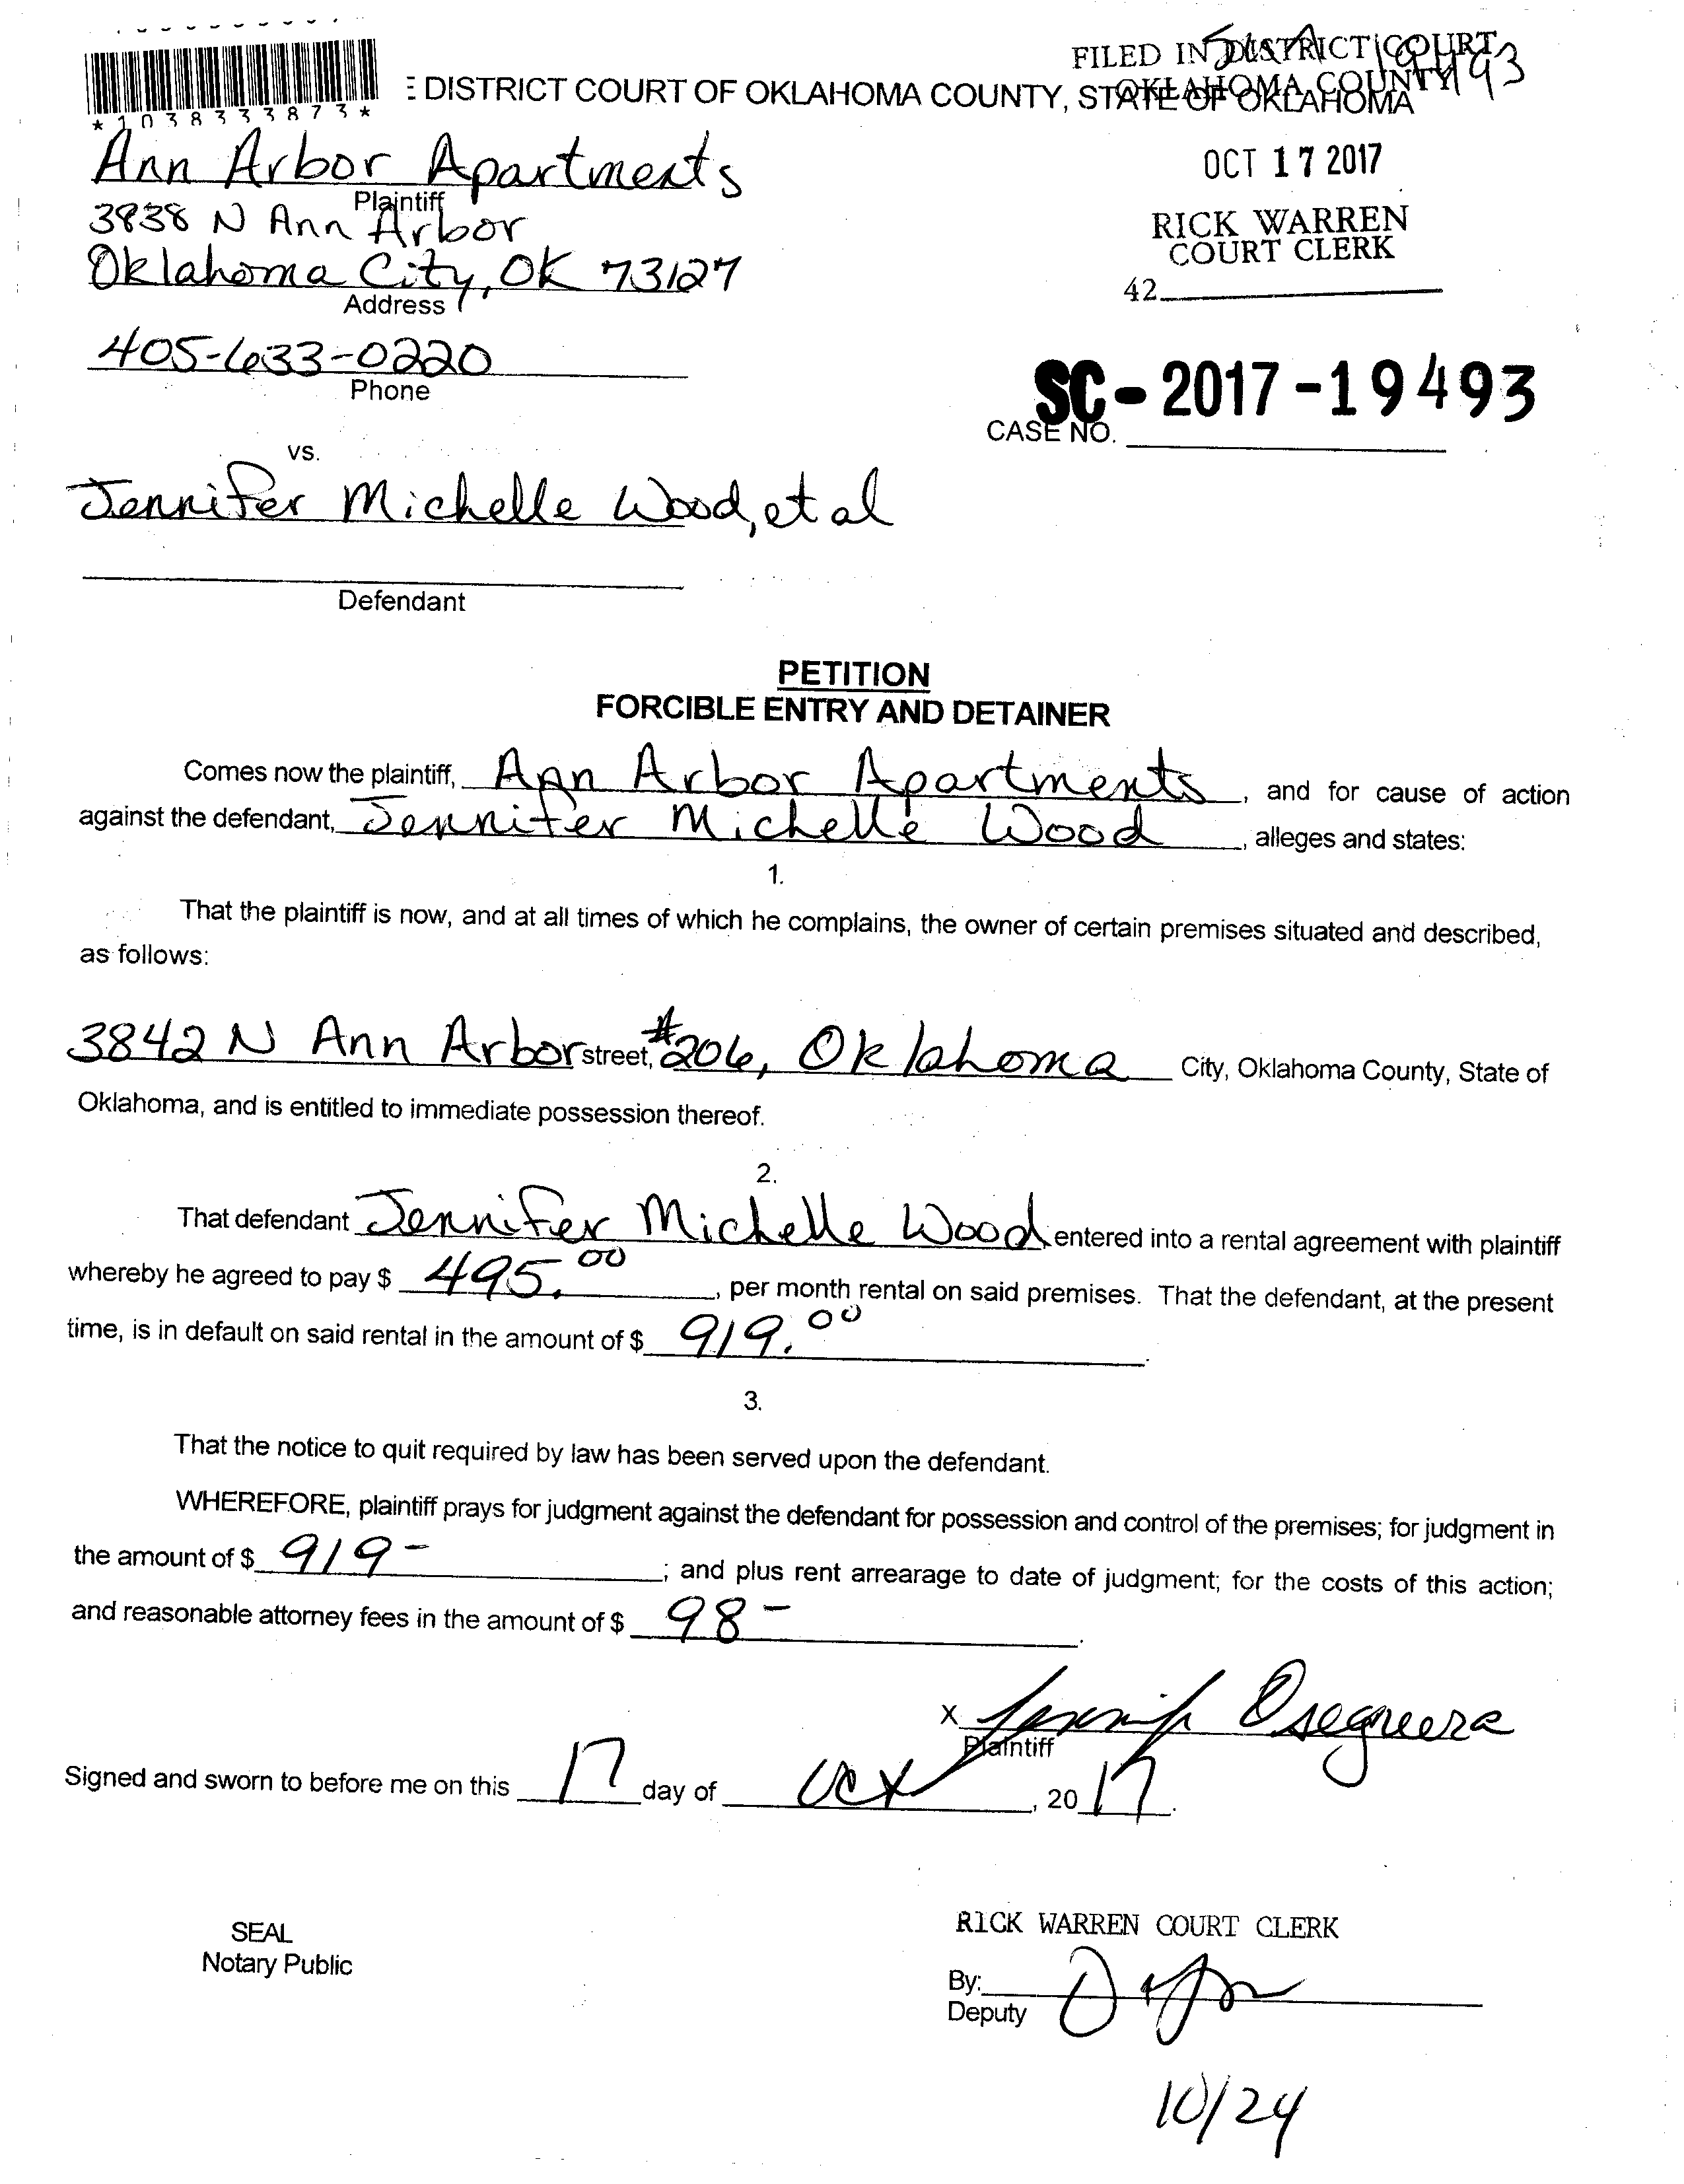 FILED IN DISTRICT COURT
OKLAHOMA COUNTY
19493
E DISTRICT COURT OF OKLAHOMA COUNTY, STATE OF OKLAHOMA
*1038333873*
Ann Arbor Apartments
Plaintiff
OCT 17 2017
3838 N Ann Arbor
RICK WARREN
COURT CLERK
Oklahoma City, OK 73127
Address
42
405-633-0220
Phone
SC-2017-19493
CASE NO.
vs.
Jennifer Michelle Wood, et al
Defendant
PETITION
FORCIBLE ENTRY AND DETAINER
Comes now the plaintiff, Ann Arbor Apartments, and for cause of action
against the defendant, Jennifer Michelle Wood, alleges and states:
1.
That the plaintiff is now, and at all times of which he complains, the owner of certain premises situated and described,
as follows:
3842 N Ann Arbor street, #206, Oklahoma City, Oklahoma County, State of
Oklahoma, and is entitled to immediate possession thereof.
2.
That defendant Jennifer Michelle Wood entered into a rental agreement with plaintiff
whereby he agreed to pay $ 495.00, per month rental on said premises. That the defendant, at the present
time, is in default on said rental in the amount of $ 919.00.
3.
That the notice to quit required by law has been served upon the defendant.
WHEREFORE, plaintiff prays for judgment against the defendant for possession and control of the premises; for judgment in
the amount of $ 919-; and plus rent arrearage to date of judgment; for the costs of this action;
and reasonable attorney fees in the amount of $ 98-.
X Osegueera
Plaintiff
Signed and sworn to before me on this 17 day of Oct, 2017.
SEAL
Notary Public
RICK WARREN COURT CLERK
By:
Deputy
10/24